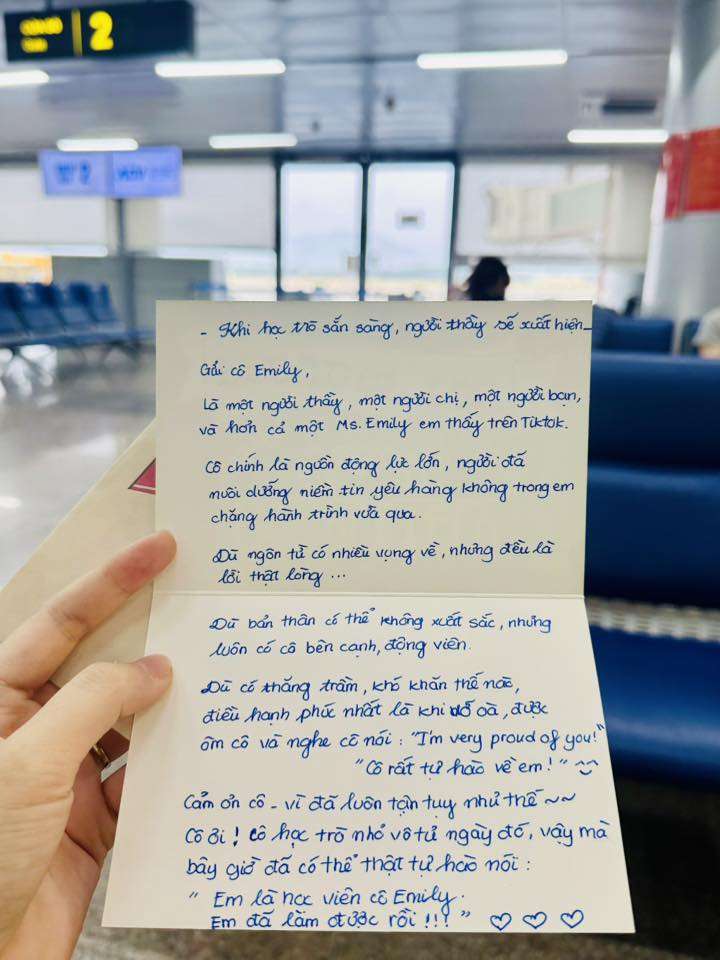 2
- Khi học trò sẵn sàng, người thầy sẽ xuất hiện -
Gửi cô Emily,
Là một người thầy, một người chị, một người bạn,
và hơn cả một Ms. Emily em thấy trên Tiktok.
Cô chính là nguồn động lực lớn, người đã
nuôi dưỡng niềm tin yêu hàng không trong em
chặng hành trình vừa qua.
Dù ngôn từ có nhiều vụng về, nhưng đều là
lời thật lòng ...
Dù bản thân có thể không xuất sắc, nhưng
luôn có cô bên cạnh, động viên.
Dù có thăng trầm, khó khăn thế nào,
điều hạnh phúc nhất là khi vỡ oà, được
ôm cô và nghe cô nói: "I'm very proud of you!"
"Cô rất tự hào về em!"
Cảm ơn cô - vì đã luôn tận tụy như thế ~~
Cô ơi! Cô học trò nhỏ vô tư ngày đó, vậy mà
bây giờ đã có thể thật tự hào nói:
" Em là học viên cô Emily.
Em đã làm được rồi !!! " ♡ ♡ ♡